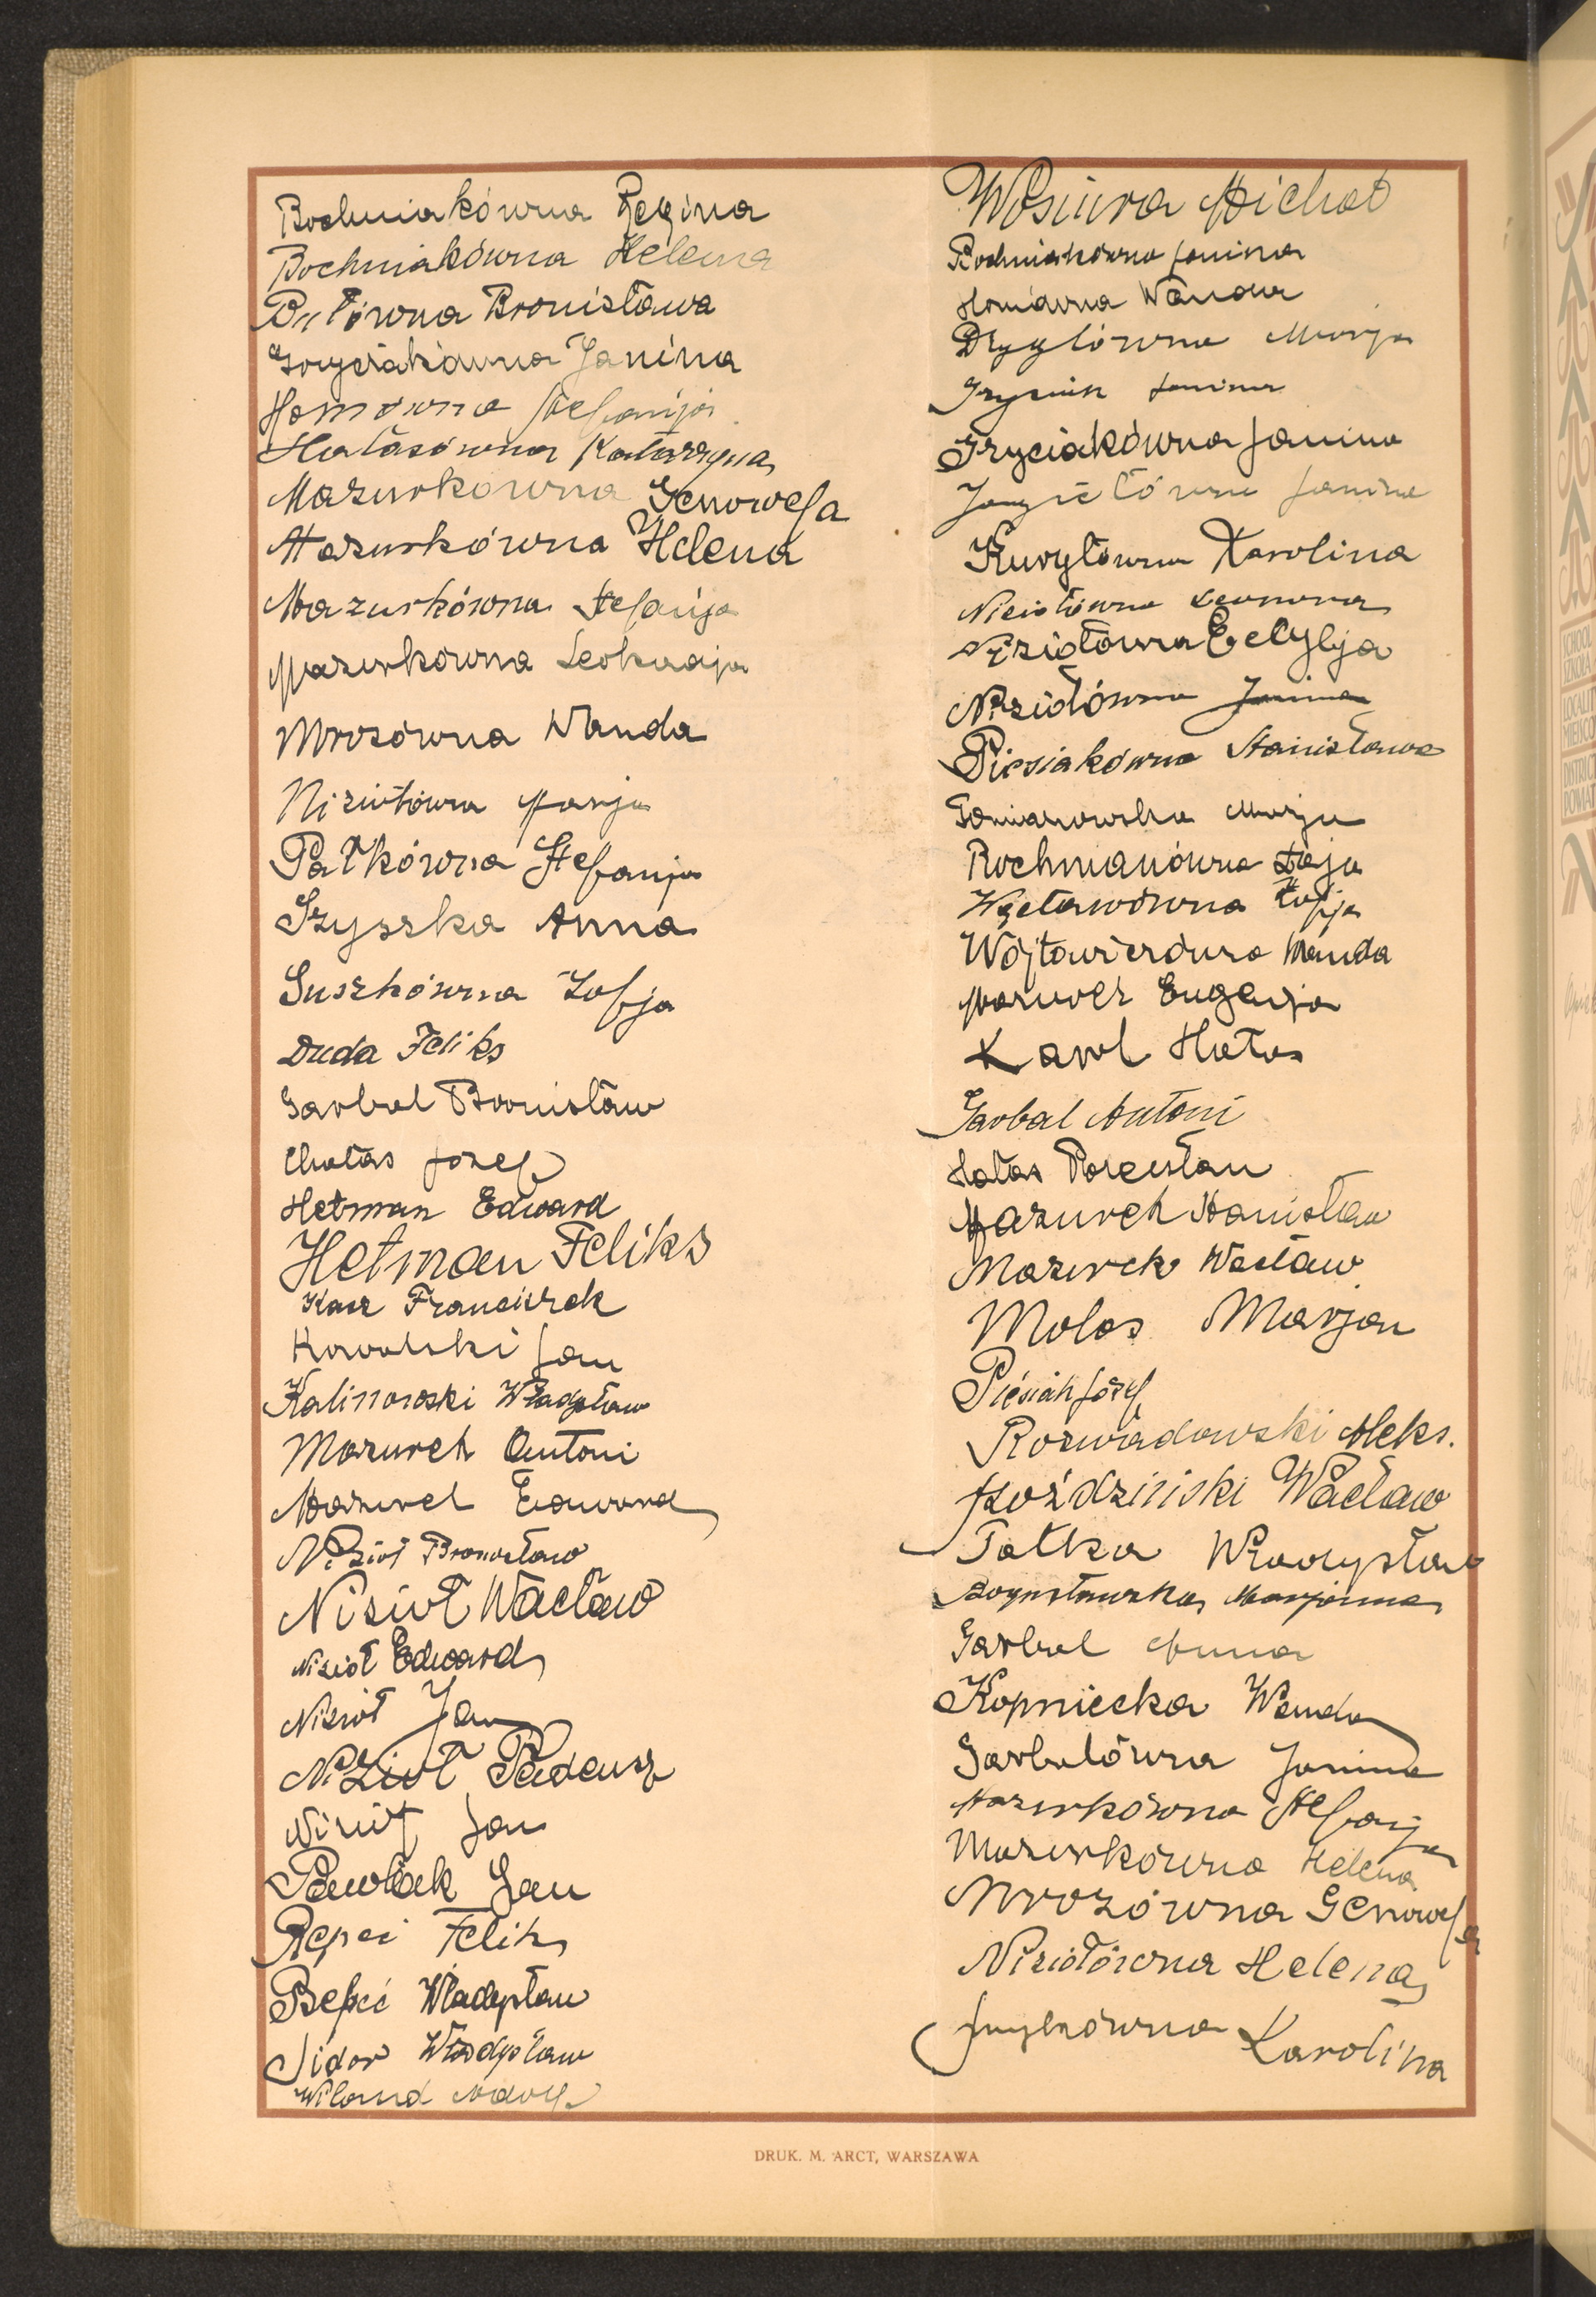 Bochniakówna Regina
Bochniakówna Helena
Bronisława
Gryciakówna Janina
Homówna Stefanija
Hałasówna Katarzyna
Mazurkówna Genowefa
Mazurkówna Helena
Mazurkówna Stefanija
Mazurkówna Leokadja
Mrozówna Wanda
Niziołówna Marja
Pałkówna Stefanja
Szyszka Anna
Suszkówna Zofja
Duda Feliks
Garbal Bronisław
Chałas Józef
Hetman Edward
Hetman Feliks
Kasz Franciszek
Kowalski Jan
Kalinowski Władysław
Mazurek Antoni
Mazurek Edward
Nizioł Bronisław
Nizioł Wacław
Nizioł Edward
Nizioł Jan
Nizioł Tadeusz
Nizioł Jan
Pawlak Jan
Repeć Feliks
Władysław
Sidor Władysław
Wiland Adolf
Wosiura Michał
Bochniakówna Janina
Homówna Wanda
Drygłówna Marja
Janina
Gryciakówna Janina
Janina
Kuryłówna Karolina
Niziołówna Leonora
Niziołówna
Niziołówna Janina
Piesiakówna Stanisława
Marja
Rochmanówna
Zofja
Wójtowiczówna Wanda
Mazurek Eugenja
Karol Hałas
Garbal Antoni
Hałas
Mazurek Stanisław
Mazurek Wacław
Molas Marjan
Piesiak Józef
Rozwadowski Aleks.
Wacław
Tatka Władysław
Bogusławska Marjanna
Garbal Anna
Kopniecka Wanda
Garbalówna Janina
Mazurkówna Stefanja
Mazurkówna Helena
Mrozówna Genowefa
Niziołówna Helena
Karolina
DRUK. M. ARCT, WARSZAWA
SCHOOL
SZKOŁA